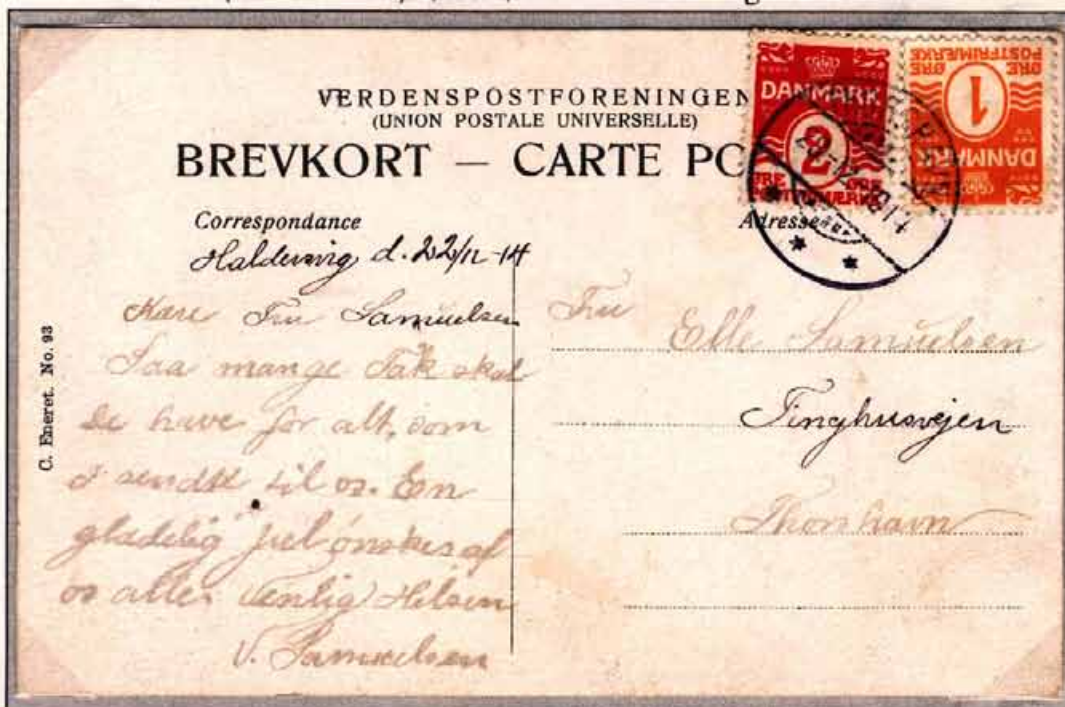 VERDENSPOSTFORENINGEN
(UNION POSTALE UNIVERSELLE)
BREVKORT — CARTE PO
Correspondance
Adresse
DANMARK
2
ØRE ØRE
POSTFRIMÆRKE
ØRE ØRE
POSTFRIMÆRKE
1
DANMARK
Haldersvig d. 22/12-14
Kære Fru Samuelsen
Saa mange Tak skal
De have for alt, som
I sendte til os. En
glædelig jul ønskes af
os alle. Venlig Hilsen
V. Samuelsen
Fru
Elle Samuelsen
Tinghusvejen
Thorshavn
C. Eneret. No. 93